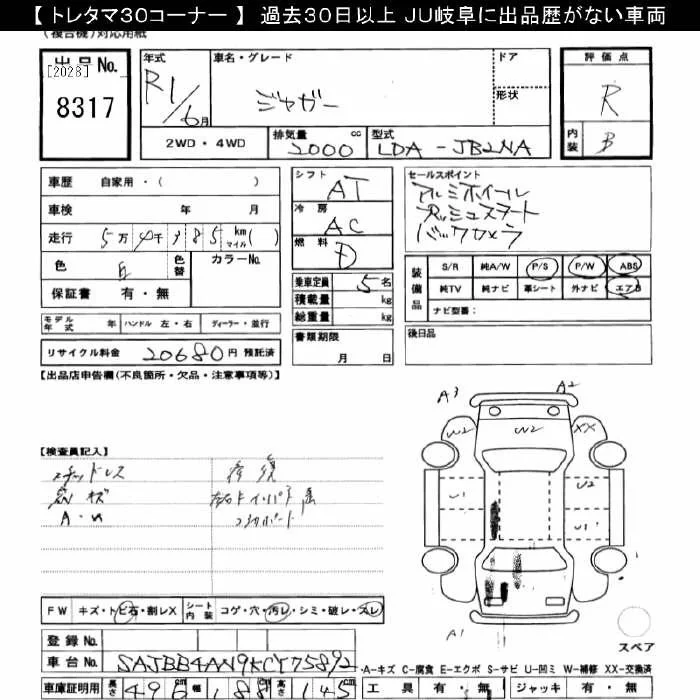 【 トレタマ30コーナー 】 過去30日以上 JU岐阜に出品歴がない車両
(複合機)対応用紙
出品No.
[2028]
8317
年式
R1/6月
車名・グレード
ジャガー
ドア
形状
評価点
R
内装
B
2WD・4WD
排気量 cc
2000
型式
LDA-JB2NA
車歴 自家用・( )
車検 年 月
走行 5万 4千 985 km マイル( )
色 白 色替 カラーNo.
保証書 有・無
モデル年式 年 ハンドル 左・右 ディーラー・並行
リサイクル料金 20680 円 預託済
シフト
AT
冷房
AC
燃料
D
乗車定員 5 名
積載量 kg
総重量 kg
書類期限
月 日
セールスポイント
アルミホイール
プッシュスタート
バックカメラ
装備品
S/R 純A/W P/S P/W ABS
純TV 純ナビ 革シート 外ナビ エアB
ナビ型番:
後日品
【出品店申告欄(不良箇所・欠品・注意事項等)】
【検査員記入】
スタッドレス
A・W
修復
コアサポート
A3 A2
W2 W2 XX
U1 U2
U1
A1
スペア
FW キズ・トビ石・割レX シート内装 コゲ・穴・汚レ・シミ・破レ・スレ
登録No.
車台No. SAJBB4AN9KCY75892
車庫証明用 長さ 496 cm 幅 188 cm 高さ 145 cm
A-キズ C-腐食 E-エクボ S-サビ U-凹ミ W-補修 XX-交換済
工具 有・無 ジャッキ 有・無